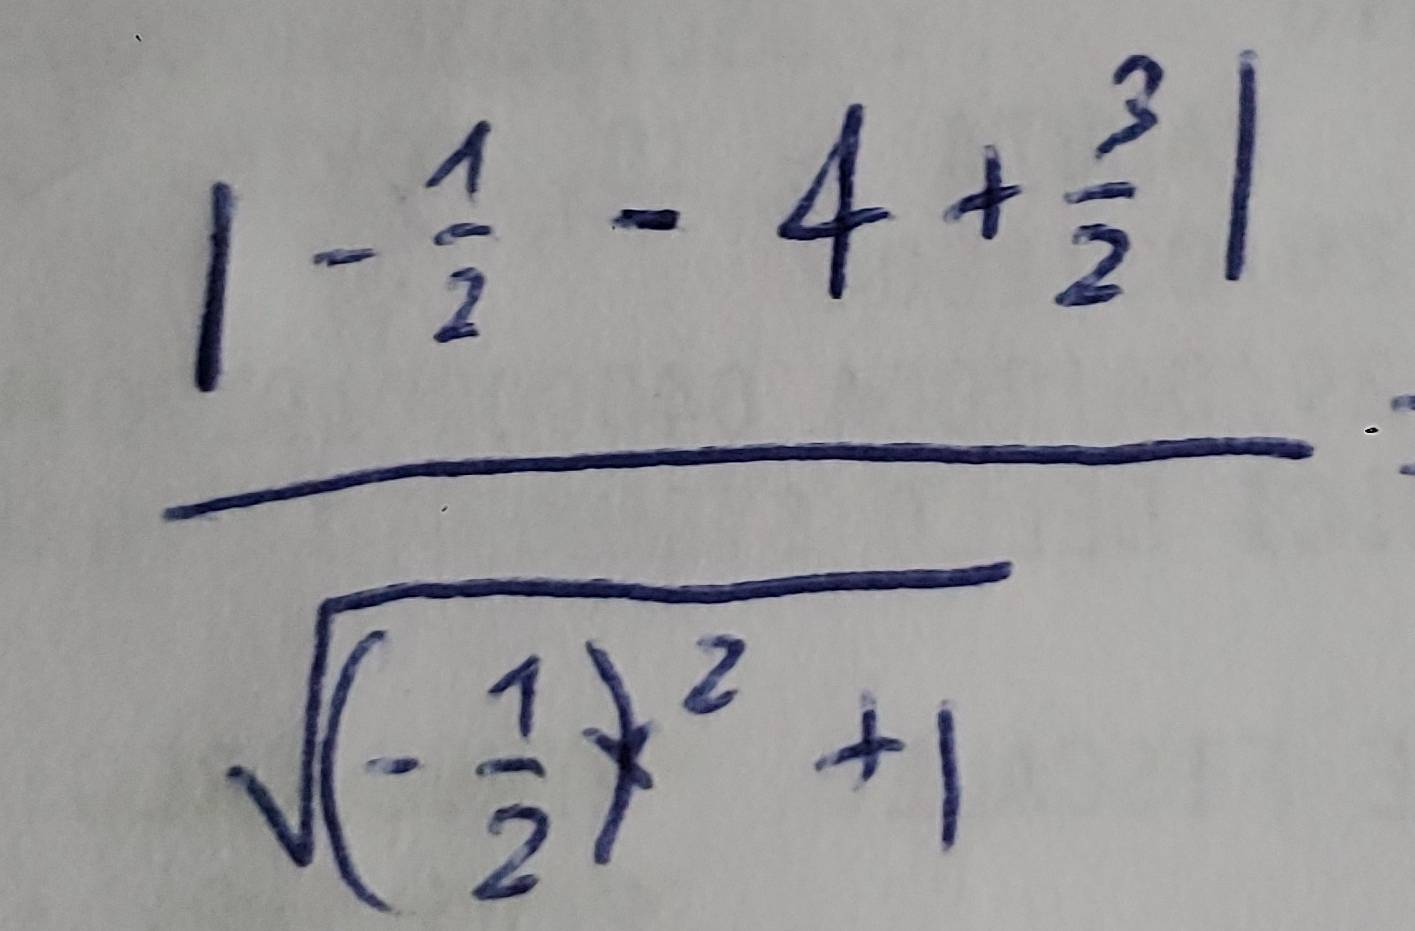 | - 1/2 - 4 + 3/2 | =
√(- 1/2)² + 1